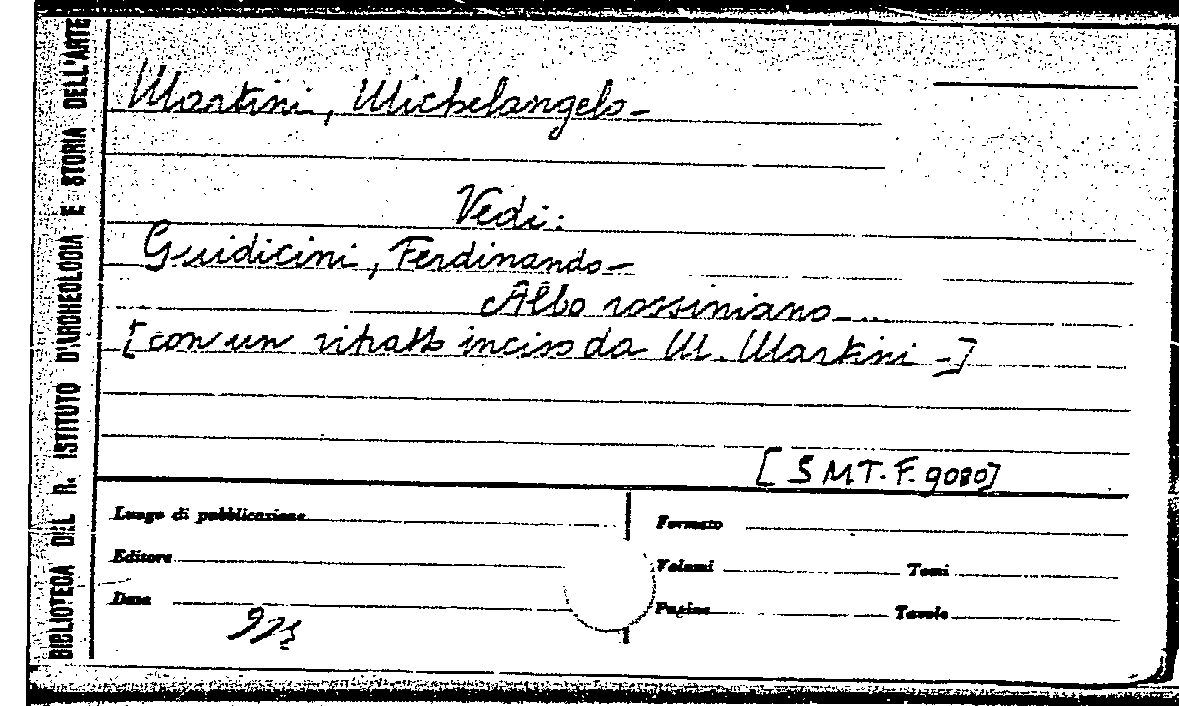 BIBLIOTECA DEL R. ISTITUTO D'ARCHEOLOGIA E STORIA DELL'ARTE
Martini, Michelangelo-
Vedi:
Guidicini, Ferdinando-
Albo rossiniano-...
[con un ritratto inciso da M. Martini -]
[SMT. F. 9080]
Luogo di pubblicazione
Formato
Editore
Volumi
Tomi
Data
Pagine
Tavole